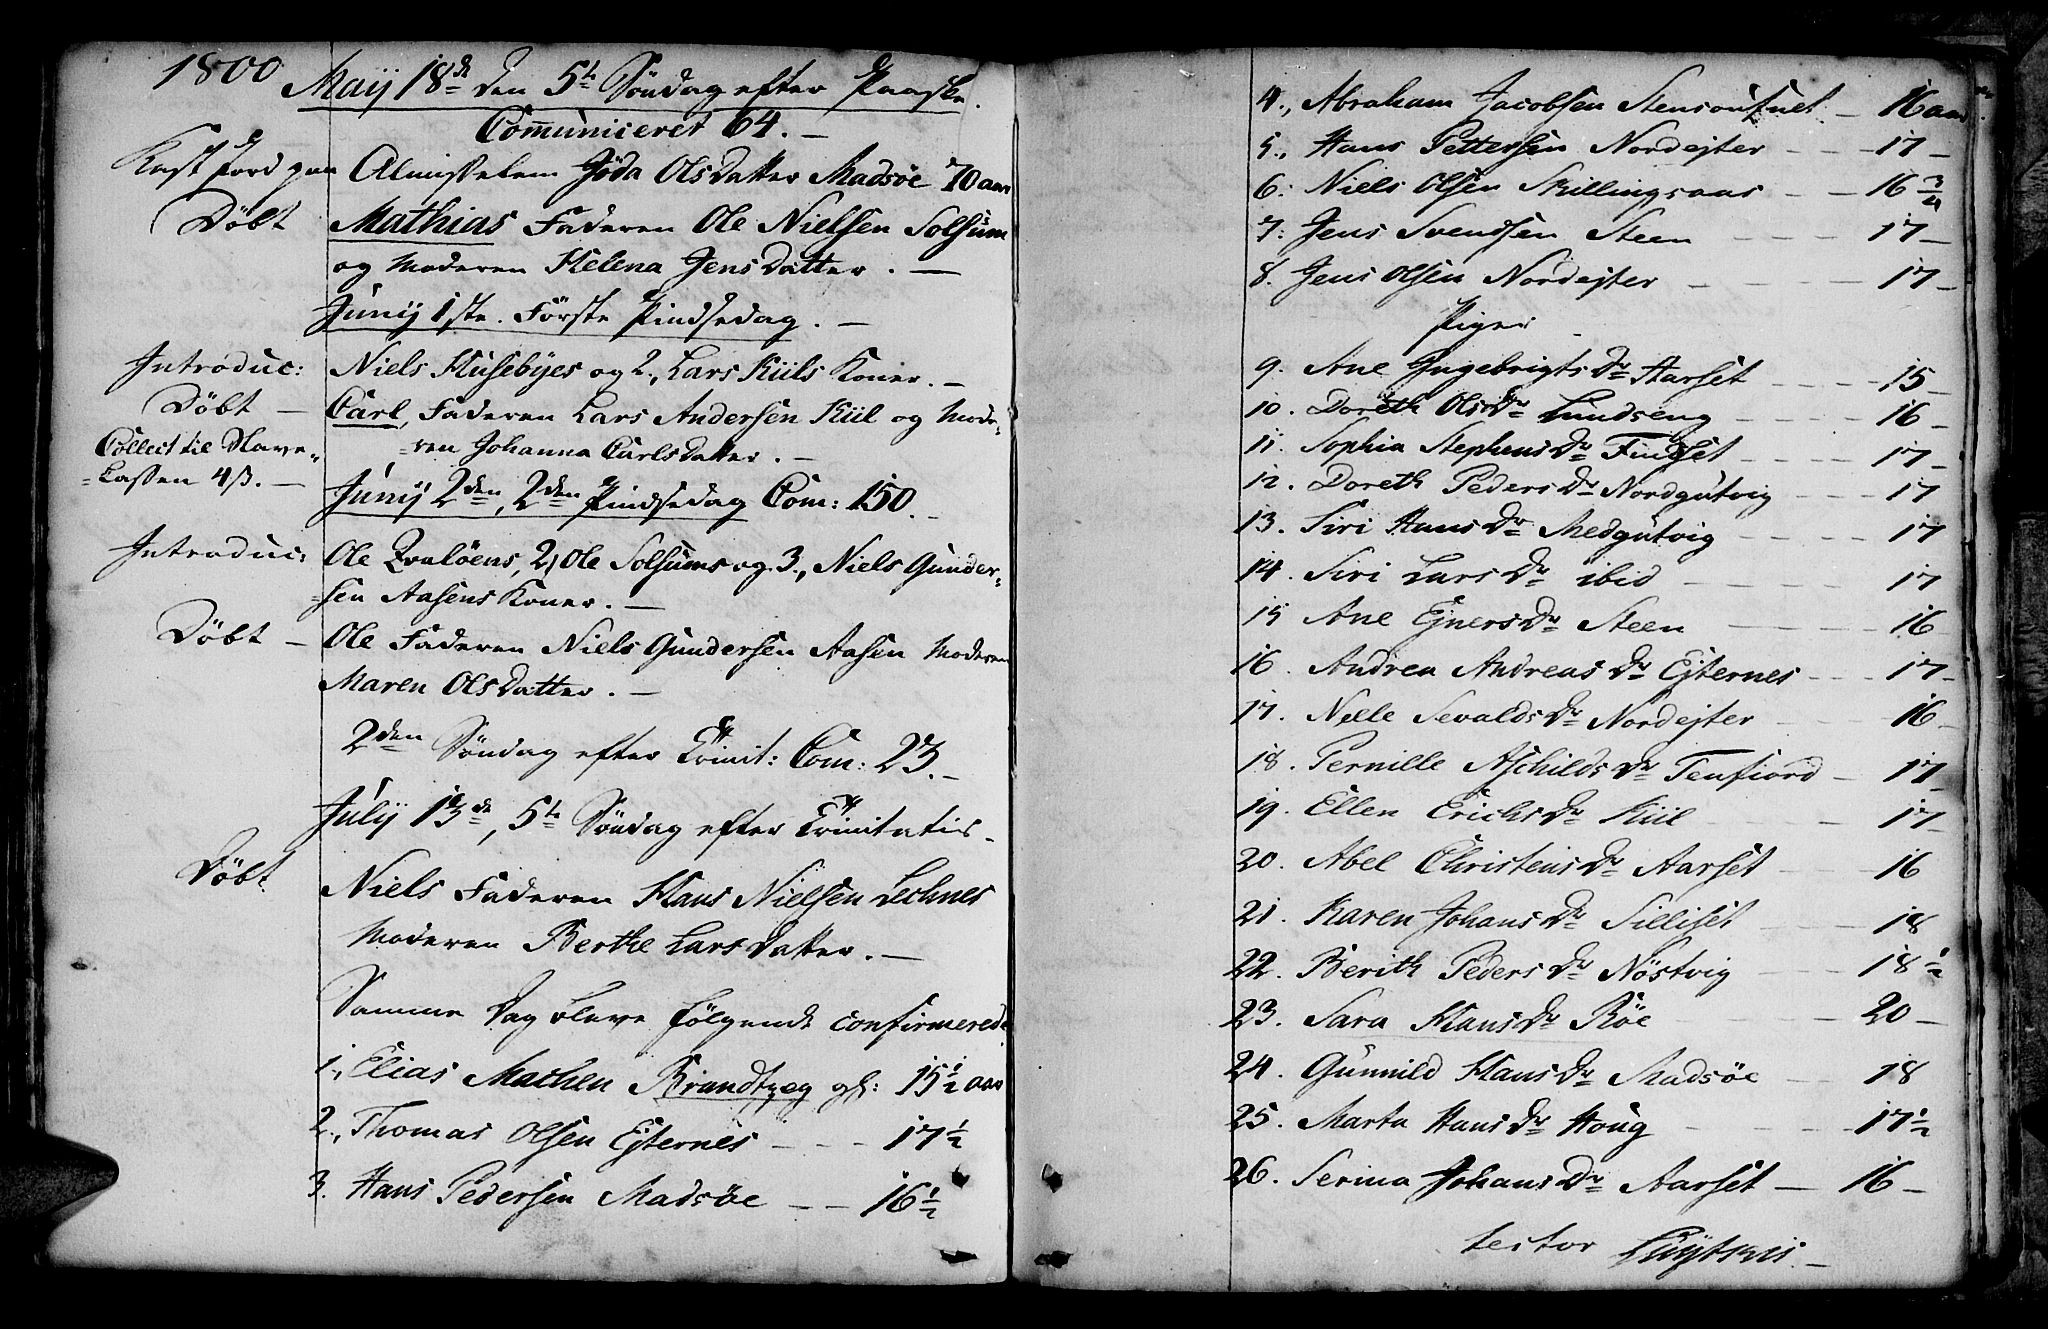 1800 Maij 18de den 5te Söndag efter Paaske.
Communiceret 64. —
Kast Jord paa Almisselem Jöda Olsdatter Madsöe 70 aar
Döbt Mathias Faderen Ole Nielsen Solsum
og Moderen Helena Jensdatter. —
Junij 1ste. Förste Pindsedag. —
Introduc: Niels Husebyes og 2., Lars Kiils Koner. —
Döbt — Carl, Faderen Lars Andersen Kiil og Mode-
Collect til Slave-
=ren Johanna Carlsdatter. —
=Cassen 4 ß. —
Junij 2den, 2den Pindsedag Com: 150. —
Introduc: Ole Qvalöens, 2, Ole Solsums og 3., Niels Gunder-
=sen Aasens Koner. —
Döbt — Ole Faderen Niels Gundersen Aasen Moderen
Maren Olsdatter. —
2den Söndag efter Trinit: Com: 23. —
July 13de, 5te Söndag efter Trinitatis —
Döbt Niels Faderen Hans Nielsen Lechnes
Moderen Berthe Larsdatter. —
Samme Dag bleve fölgende confirmerede
1., Elias Mathen Brandtzeg gl: 15 1/2 aar
2., Thomas Olsen Ejternes — — — 17 1/2
3. Hans Pedersen Madsöe — — 16 1/2
4., Abraham Jacobsen — 16 aar
5., Hans Pettersen Nordejter — — — 17 —
6: Niels Olsen Skillingsaas — — 16 3/4
7: Jens Svendsen Steen — — — — 17 —
8. Jens Olsen Nordejter — — — — 17 —
Piger —
9. Ane Ingebrigts Dr Aarset — — — — 15 —
10. Doreth Ols Dr Lundseng — — — — 16 —
11. Sophia Stephens Dr Findset — — — 17 —
12. Doreth Peders Dr Nordgutvig — — — 17
13. Siri Hans Dr Medgutvig — — — — 17
14. Siri Lars Dr ibid — — — — 17
15 Ane Ejners Dr Steen — — — — 16
16. Andrea Andreas Dr Ejternes — — — 17 —
17. Nille Sevalds Dr Nordejter — — — 16 —
18. Pernille Aschilds Dr Tenfiord — 17 —
19. Ellen Erichs Dr Kiil — — 17 —
20. Abel Christens Dr Aarset — — — 16
21. Karen Johans Dr Silliset — — — 18
22. Berith Peders Dr Nöstvig — — 18 1/2
23. Sara Hans Dr Röe — — — 20 —
24. Gunnild Hans Dr Madsöe — — 18
25. Marta Hans Dr Houg — — — 17 1/2
26. Serina Johans Dr Aarset — 16 —
testor